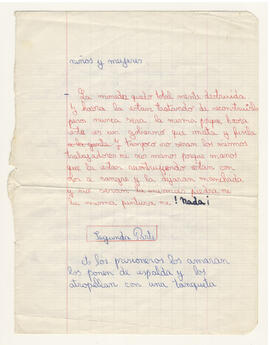 niños y mujeres
La moneda quedo total mente destruida
Y haora la estan tratando de reconstruirla
pero nunca sera la misma porque haora
este es un gobierno que mata y fusila
a la gente Y tampoco no seran los mismos
trabajadores ni sus manos porque manos
que la estan construyendo estan con
olor a sangre y la dejaran manchada
y no seran la mismas piedra ni
la misma pintura ni ¡Nada!
Segunda Parte
A los prisioneros los amaran
los ponen de espalda y los
atropellan con una tanqueta